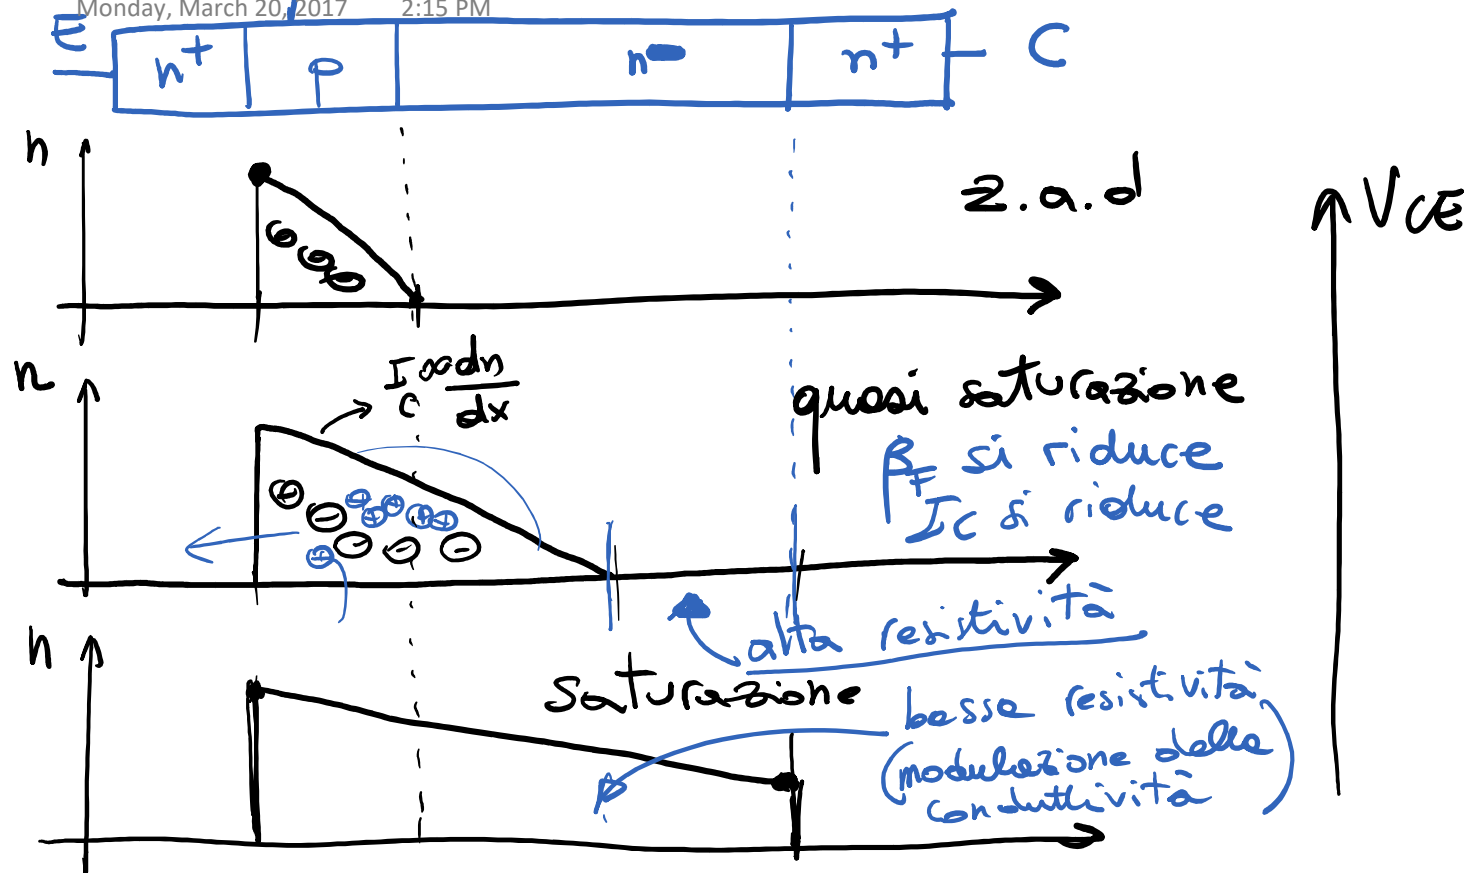 Monday, March 20, 2017 2:15 PM
E n+ p n- n+ C
n
z.a.d
VCE
n
IC ∝ dn/dx
quasi saturazione
βF si riduce
IC si riduce
alta resistività
n
saturazione
bassa resistività
(modulazione della
conduttività)